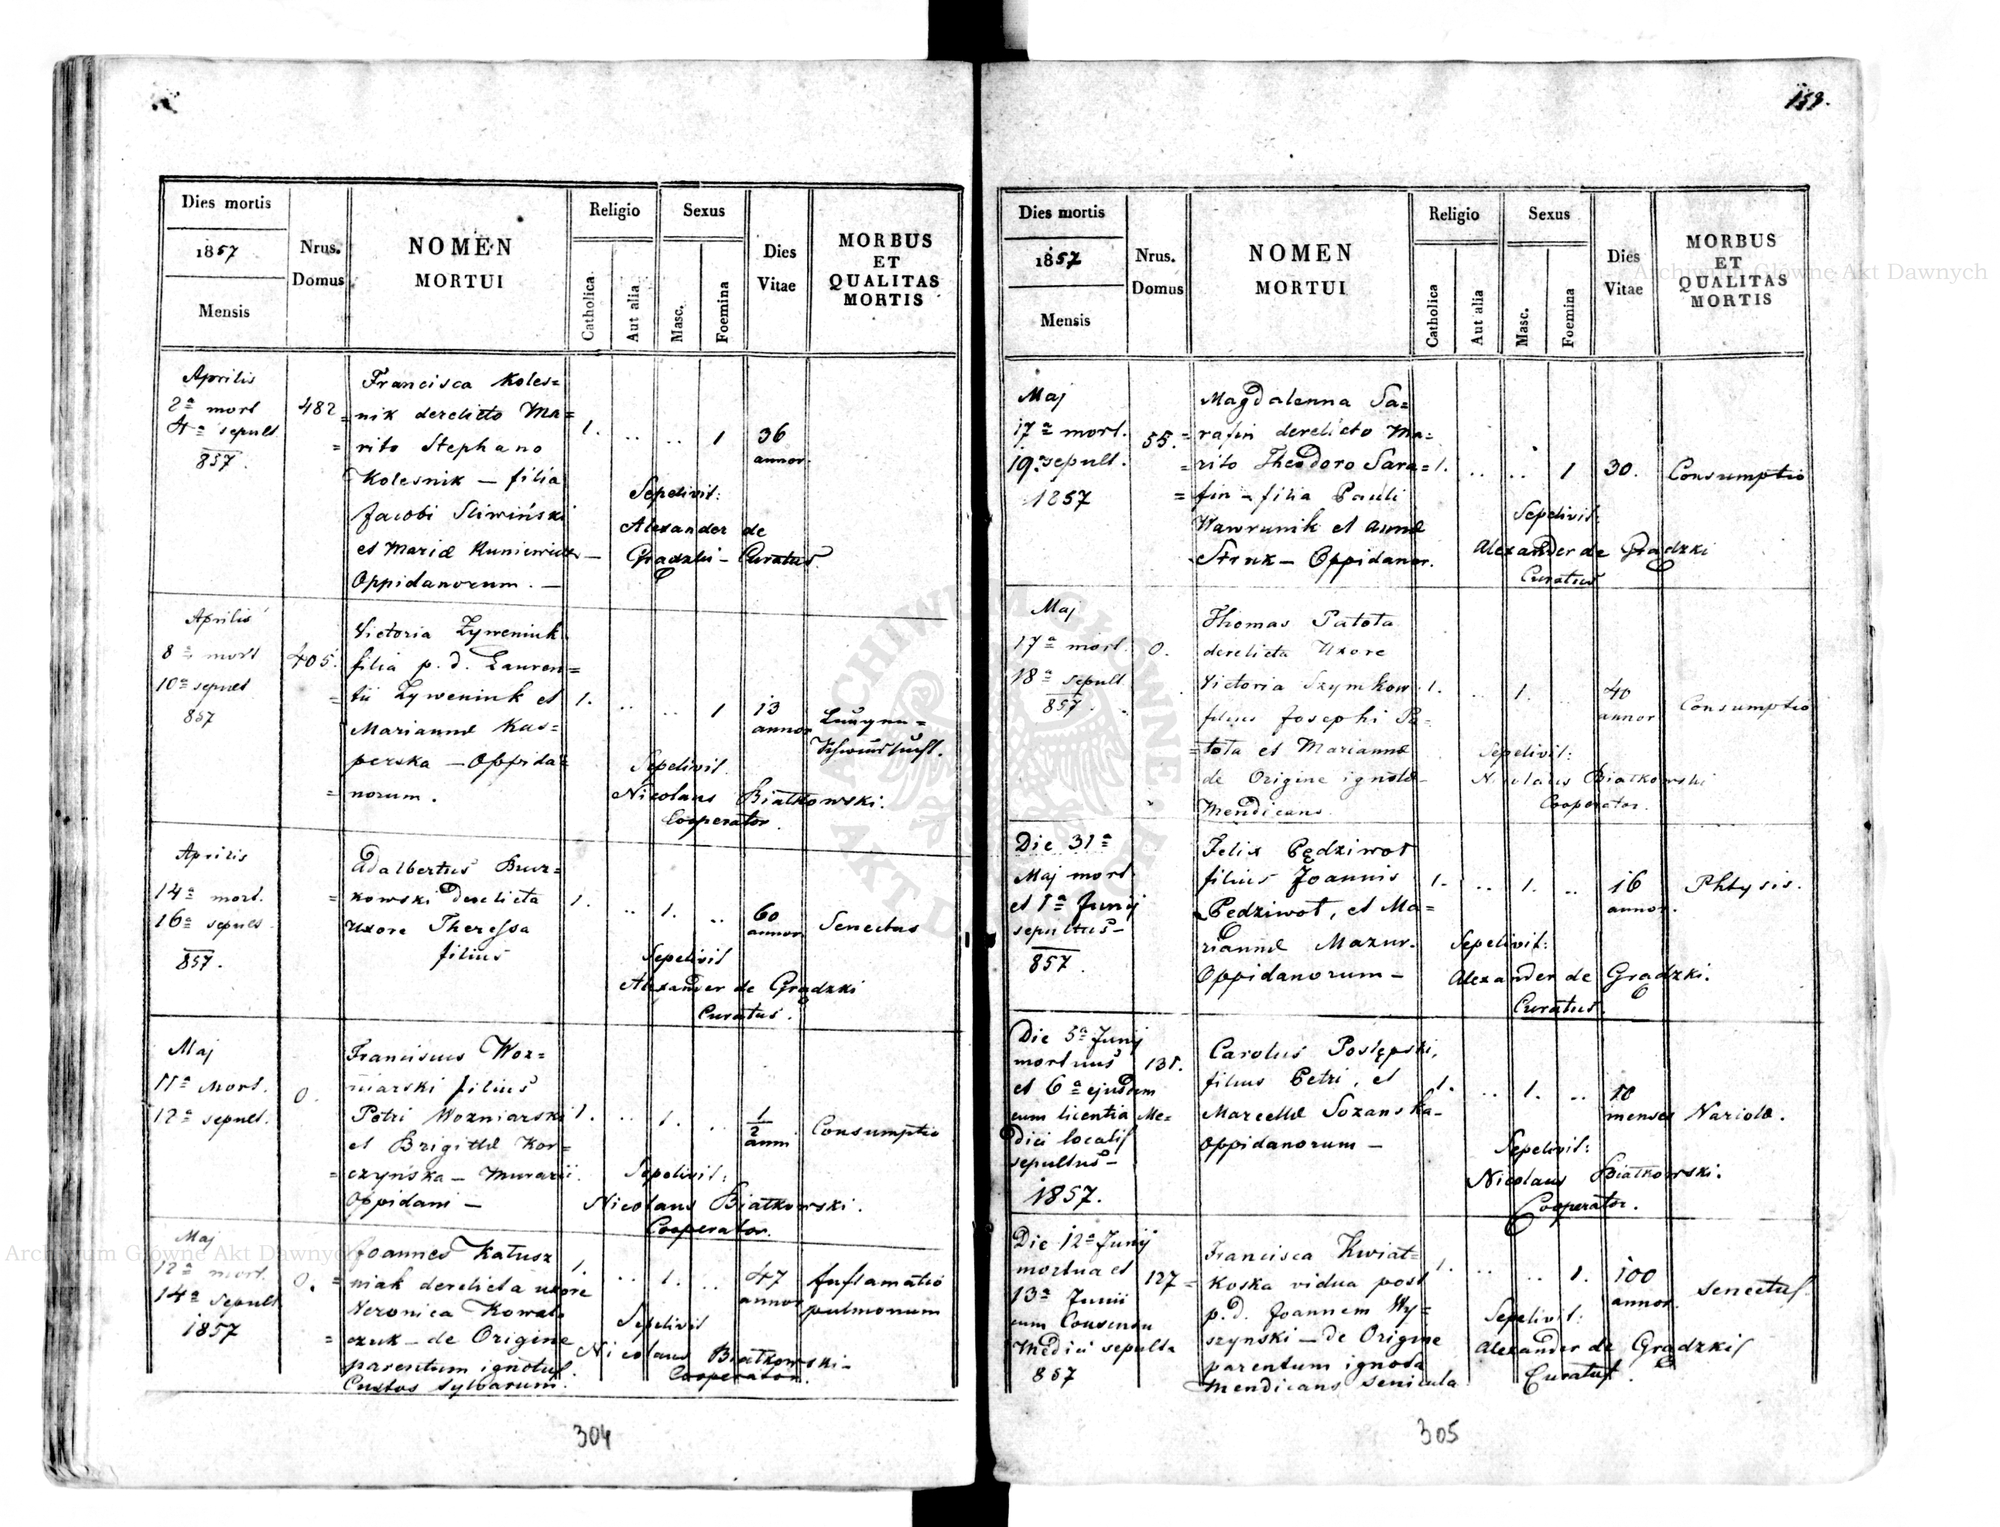 159.
Dies mortis
1857
Mensis
Nrus.
Domus
NOMEN
MORTUI
Religio
Catholica
Aut alia
Sexus
Masc.
Foemina
Dies
Vitae
MORBUS
ET
QUALITAS
MORTIS
Aprilis
2a mort
4a sepult
857.
482
Francisca Koles=
=nik derelicto Ma=
=rito Stephano
Kolesnik – filia
Jacobi Sliwiński
et Mariæ
Oppidanorum. –
1. .. .. 1
36
annor.
Sepelivit:
Alexander de
Gradzki – Curatus
Aprilis
8a mort
10a sepult
857
405.
Victoria Zyweniuk
filia p. d. Lauren=
=tii Zyweniuk et
Mariannæ Kas=
perska – Oppida=
=norum.
1. .. .. 1
13
annor
Sepelivit
Nicolaus Białkowski.
Cooperator.
Aprilis
14a mort.
16a sepult.
857.
Adalbertus Burz=
=kowski derelicta
uxore Theressa
filius
1. .. 1. ..
60
annor
Senectus
Sepelivit
Alexander de Grądzki
Curatus.
Maj
11a Mort.
12a sepult.
0.
Franciscus Woz=
niarski filius
Petri Wozniarski
et Brigittæ Kor=
=czyńska – Murarii
Oppidani –
1. .. 1. ..
1/2
anni
Consumptio
Sepelivit:
Nicolaus Białkowski.
Cooperator.
Maj
12a mort.
14a Sepult
1857
0.
Joannes Katusz
=niak derelicta uxore
Veronica Kowal=
=czuk – de Origine
parentum ignotus.
Custos Sylvarum.
1. .. 1. ..
47
annor
Inflamatio
pulmonum
Sepelivit
Nicolaus Białkowski –
Cooperator.
304
Dies mortis
1857
Mensis
Nrus.
Domus
NOMEN
MORTUI
Religio
Catholica
Aut alia
Sexus
Masc.
Foemina
Dies
Vitae
MORBUS
ET
QUALITAS
MORTIS
Maj
17a mort.
19a sepult.
1857
55.
Magdalenna Sa=
=rafin derelicto Ma=
=rito Theodoro Sara=
=fin – filia Pauli
Wawrunik et Annæ
Struk – Oppidanor.
1. .. .. 1
30.
Consumptio
Sepelivit:
Alexander de Grądzki
Curatus
Maj
17a mort.
18a sepult
857.
0.
Thomas Patota
derelicta Uxore
Victoria Szymkow
filius Josephi Pa=
=tota et Mariannæ
de Origine ignotæ
Mendicans
1. .. 1.
40
annor
Consumptio
Sepelivit:
Nicolaus Białkowski
Cooperator.
Die 31a
Maj mort.
et 1a Junij
sepultus –
857.
Felix Pędziwot
filius Joannis
Pedziwot, et Ma=
riannæ Mazur.
Oppidanorum –
1. .. 1. ..
16
annor.
Phtysis.
Sepelivit:
Alexander de Grądzki.
Curatus.
Die 5a Junij
mortuus
et 6a ejusdem
cum licentia Me=
dici localis
sepultus –
1857.
131.
Carolus Postępski,
filius Petri, et
Marcellæ Sozanska –
Oppidanorum –
1. .. 1. ..
10
menses
Variolæ.
Sepelivit:
Nicolaus Białkowski.
Cooperator.
Die 12a Junij
mortua et
13a Junii
cum Consensu
Medici sepulta
857
127
Francisca Kwiat=
=koska vidua post
p. d. Joannem Wy=
szynski – de Origine
parentum ignota
Mendicans senicula
1. .. .. 1.
100
annor.
senectus.
Sepelivit:
Alexander de Grądzki
Curatus.
305
Archiwum Główne Akt Dawnych
Archiwum Główne Akt Dawnych
ARCHIWUM GŁÓWNE
AKT DAWNYCH